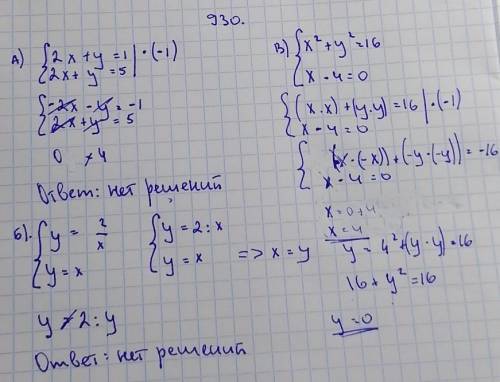 930.
А) {2x + y = 1 | · (-1)
{2x + y = 5
{-2x - y = -1
{2x + y = 5
0 ≠ 4
Ответ: нет решений
Б). {y = 2/x
{y = x
{y = 2 : x
{y = x
=> x = y
y ≠ 2 : y
Ответ: нет решений
В) {x² + y² = 16
{x - 4 = 0
{(x · x) + (y · y) = 16 | · (-1)
{x - 4 = 0
{(x · (-x)) + (-y · (-y)) = -16
{x - 4 = 0
x = 0 + 4
x = 4
y = 4² + (y · y) = 16
16 + y² = 16
y = 0